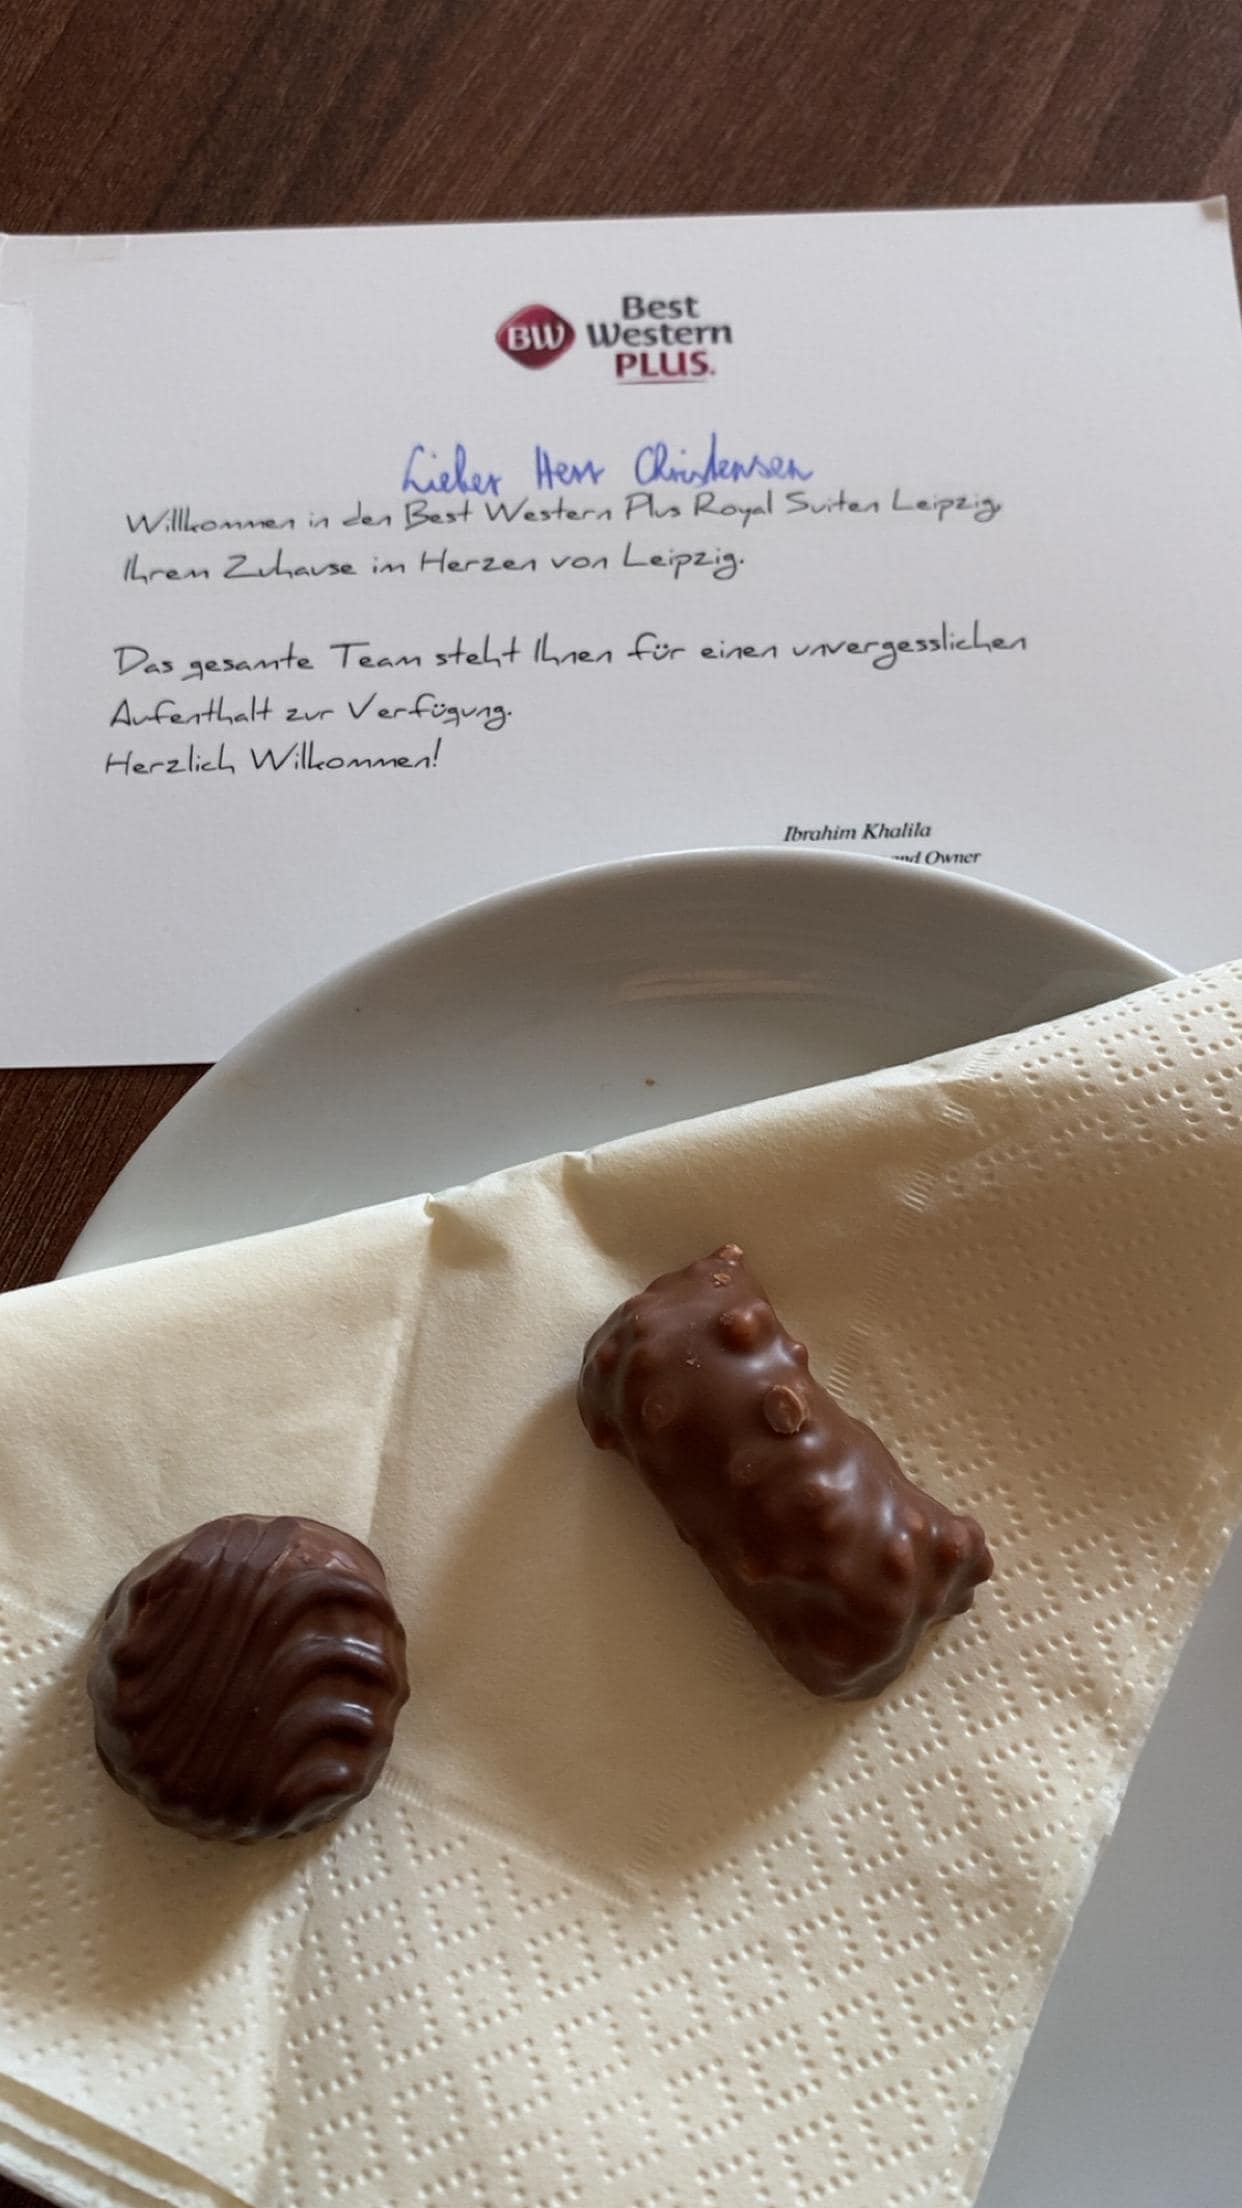 BW
Best
Western
PLUS.
Lieber Herr Christensen
Willkommen in den Best Western Plus Royal Suiten Leipzig,
Ihrem Zuhause im Herzen von Leipzig.
Das gesamte Team steht Ihnen für einen unvergesslichen
Aufenthalt zur Verfügung.
Herzlich Willkommen!
Ibrahim Khalila
and Owner